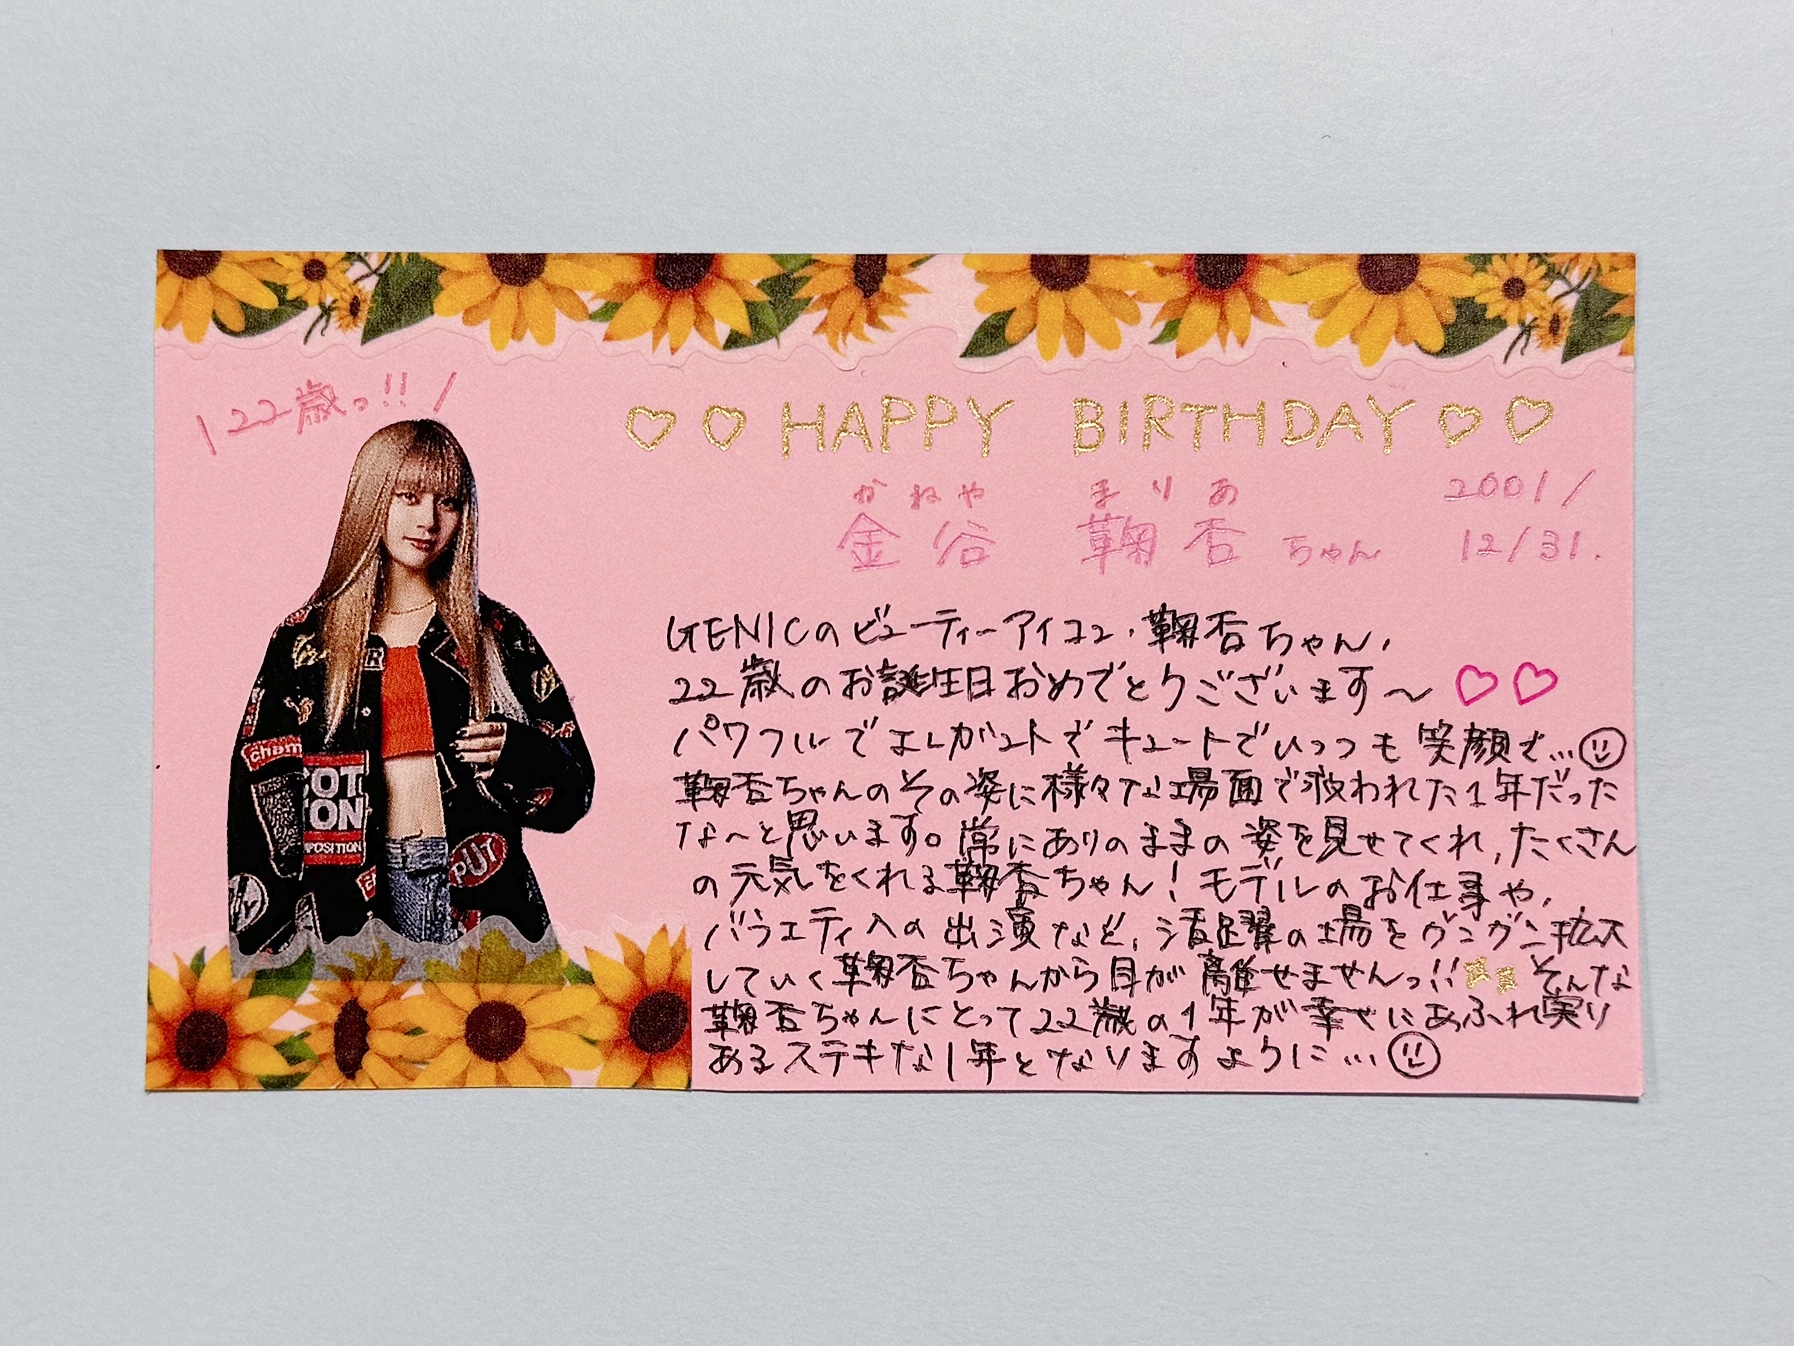 \22歳っ!!/
♡♡HAPPY BIRTHDAY♡♡
かねや まりあ 2001/
金谷 鞠杏ちゃん 12/31.
GENICのビューティーアイコン・鞠杏ちゃん、
22歳のお誕生日おめでとうございます〜♡♡
パワフルでエレガントでキュートでいっつも笑顔で…
鞠杏ちゃんのその姿に様々な場面で救われた1年だった
な〜と思います。常にありのままの姿を見せてくれ、たくさん
の元気をくれる鞠杏ちゃん!モデルのお仕事や、
バラエティへの出演など、活躍の場をグングン拡大
していく鞠杏ちゃんから目が離せませんっ!!そんな
鞠杏ちゃんにとって22歳の1年が幸せにあふれ実り
あるステキな1年となりますように…
cham
HOT
ION
POSITION
PUT